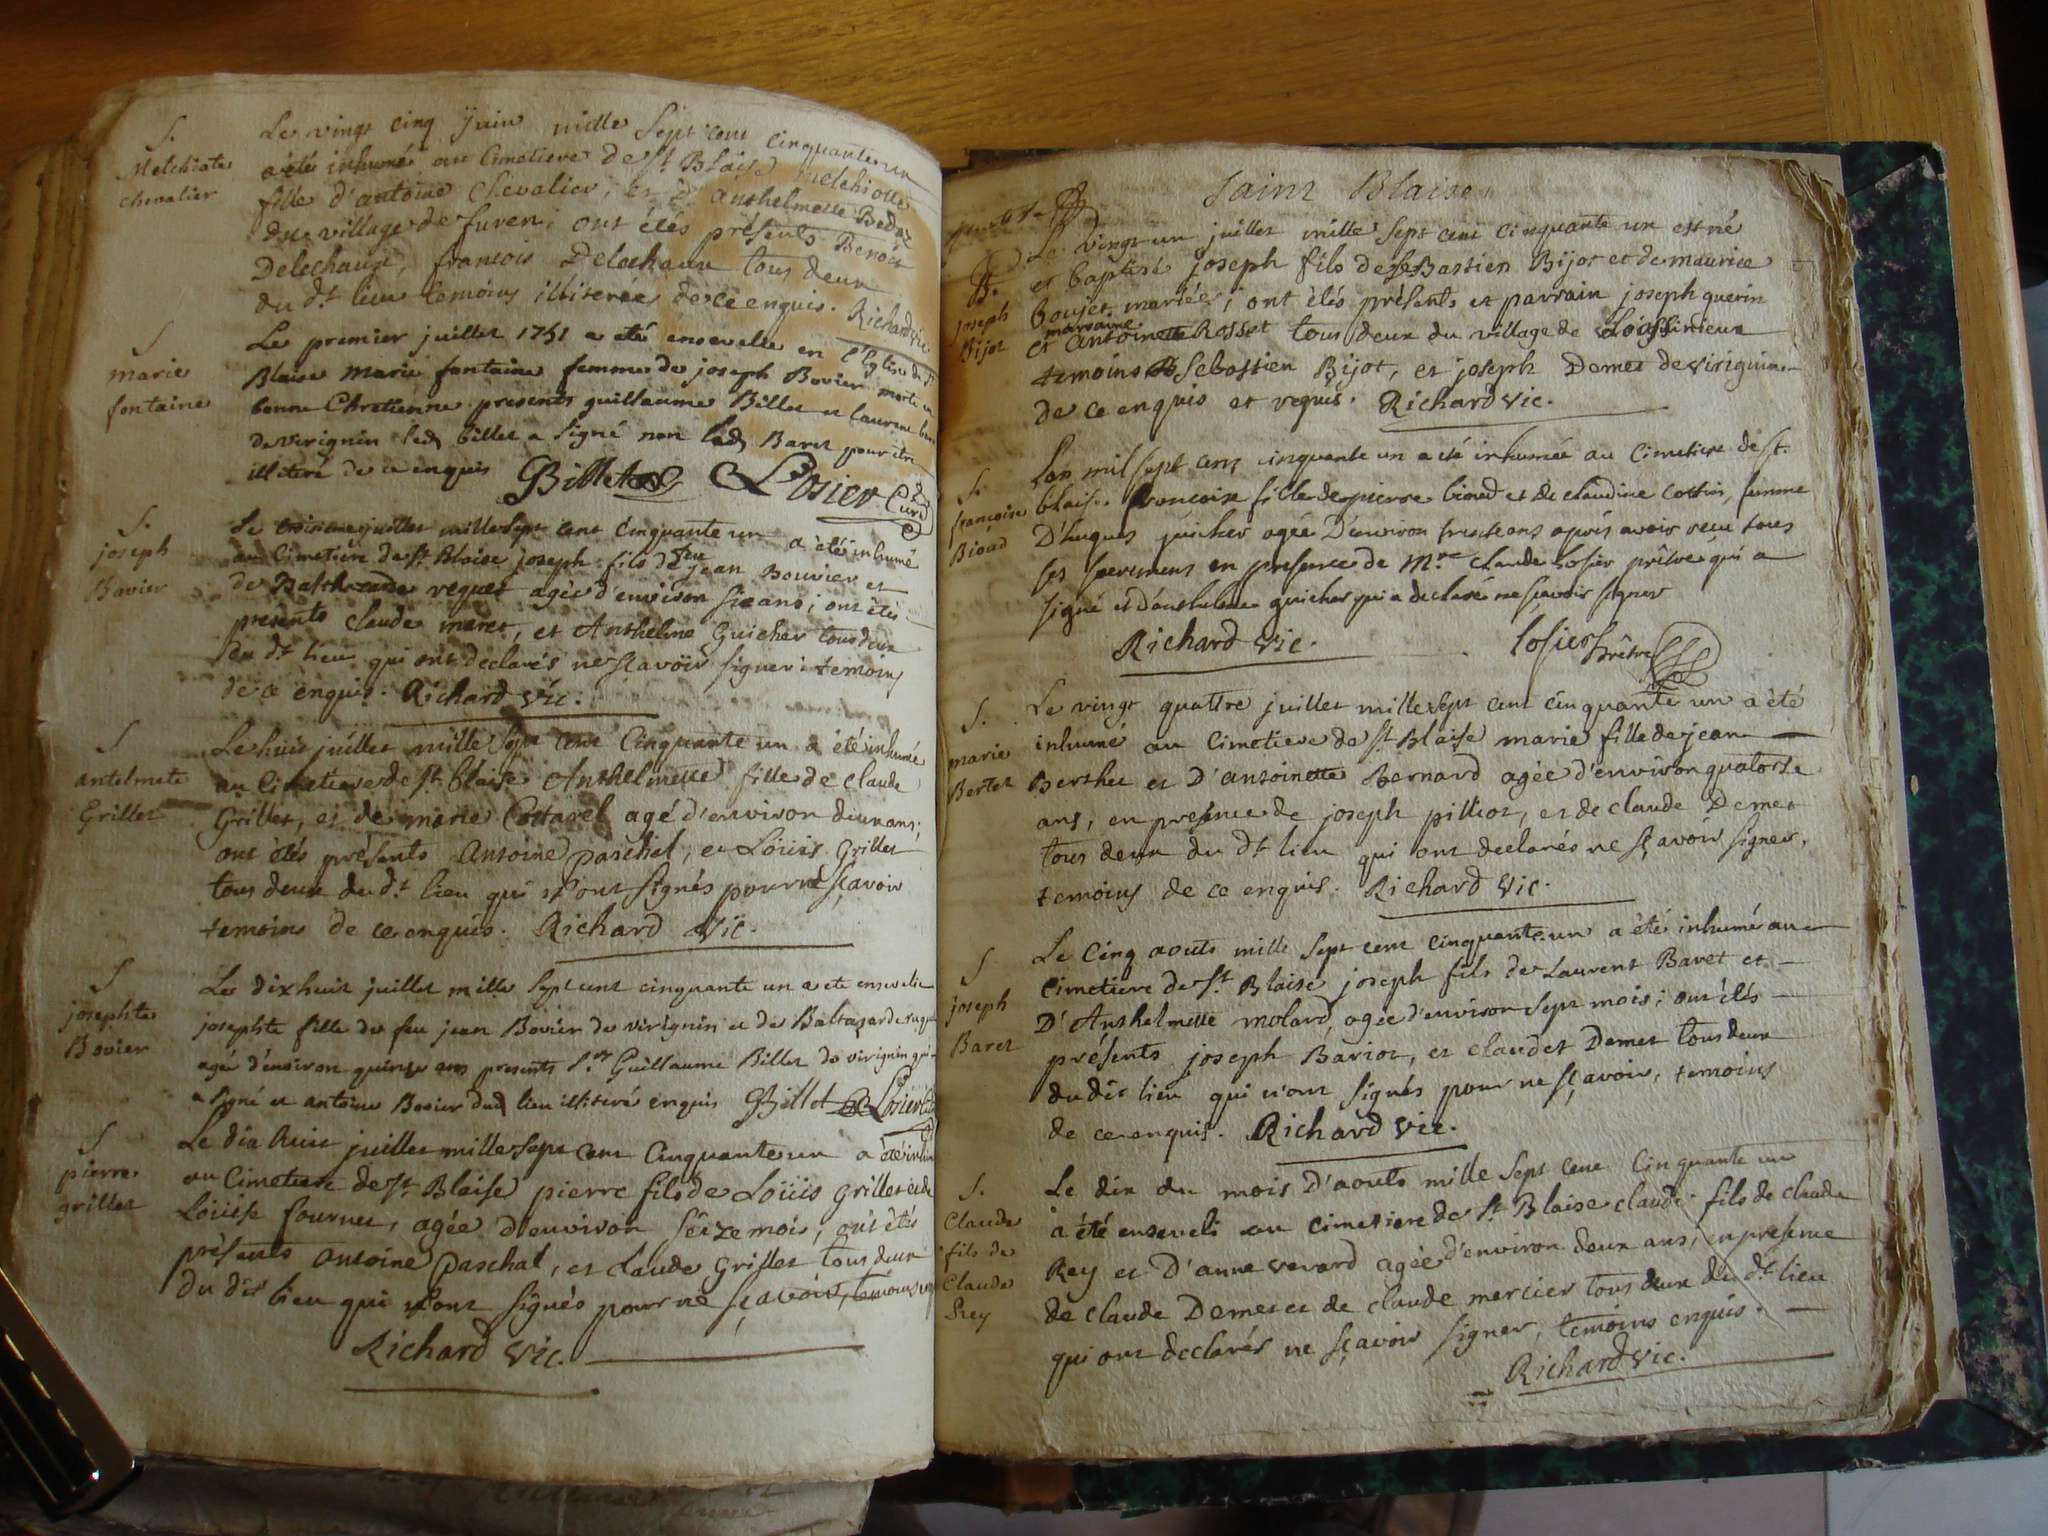 S.
Melchiote
chevalier
Le vingt cinq Juin mille sept cent cinquante un
a été inhumé au Cimetiere de St. Blaise melchiotte
fille d'antoine Chevalier, et d'anthelmette Bedoz
du village de furen; ont étés présents Benoit
Delechaux, francois Delechaux tous deux
du dt. lieu temoins illiterée de ce enquis. Richard vic
S
marie
fontaine
Le premier juillet 1751 a eté ensevelie en l'Eglise de St
Blaise Marie fontaine femme de joseph Bovier morte en
bonne Chretienne presents guillaume Billet et laurent
de virignin led billet a signé non led Baret pour etre
illiteré de ce enquis Billet Losier Curé
S.
joseph
Bavier
Le troisieme juillet mille sept cent cinquante un a été inhumé
au Cimetiére de St. Blaise joseph fils de feu jean Bouvier et
de requet agée d'environ six ans; ont étés
présents claude meret, et Anthelme Guicher tous deux
du dt. lieu qui ont declarés ne sçavoir signer temoins
de ce enquis. Richard vic.
S
antelmete
Grillet
Le huit juillet mille sept cent cinquante un a été inhumé
au Cimetiere de St. blaise Anthelmette fille de Claude
Grillet, et de marie Cottarel agé d'environ deux ans;
ont étés présents Antoine paschal, et Loüis Grillet
tous deux du dt. lieu qui n'ont signés pour ne sçavoir
temoins de ce enquis. Richard vic.
S
josephte
Bovier
Le dix huit juillet mille sept cent cinquante un a ete ensevelie
josephte fille de feu jean Bovier de virignin et de Baltazarde
agé d'environ quinze ans presents Sr. Guillaume Billet de virignin qui
a signé et antoine Bovier dud lieu illiteré enquis Billet Losier Curé
S
pierre
grillet
Le dix huit juillet mille sept cent Cinquante un a été
au Cimetiere de St. Blaise pierre fils de Loüis Grillet et de
Loüise fournet, agée d'environ séize mois, ont étés
présents antoine paschal, et Claude Grillet tous deux
du dit lieu qui n'ont signés pour ne sçavoir, temoins
Richard vic.
Saint Blaise
B.
joseph
Bijot
Le vingt un juillet mille sept cent cinquante un est né
et baptisé joseph fils de Sebastien Bijot et de maurice
boujet mariés; ont étés présents et parrain joseph guerin
et marraine antoinette Rosset tous deux du village de
temoins Sebastien Bijot, et joseph Demet de virignin
de ce enquis et requis. Richard vic.
S.
francoise
Bioud
L'an mil sept cent cinquante un a été inhumée au Cimetiere de St.
blaise francoise fille de pierre bioud et de claudine Cottin, femme
D'hugues guicher agée D'environ trente ans après avoir recu tous
ses sacremens en presence de Mre. Claude Losier prêtre qui a
signé et D'anthelme guicher qui a declaré ne sçavoir signer
Richard vic. Losier prêtre
S.
marie
Bertet
Le vingt quattre juillet mille sept cent cinquante un a été
inhumé au Cimetiere de St. Blaise marie fille de jean
Berthet et D'antoinette Bernard agée d'environ quatorse
ans, en presence de joseph pilliot, et de claude Demet
tous deux du dt. lieu qui ont declarés ne sçavoir signer,
temoins de ce enquis. Richard vic.
S
joseph
Baret
Le Cinq aouts mille sept cent cinquante un a été inhumé au
Cimetiere de St. Blaise joseph fils de Laurent Baret et
D'Anthelmette molard, agée d'environ sept mois; ont étés
présents joseph Bariot, et claudet Demet tous deux
du dit lieu qui n'ont signés pour ne sçavoir, temoins
de ce enquis. Richard vic.
S.
Claude
fils de
Claude
Rey
Le dix du mois D'aouts mille sept cent Cinquante un
a été enseveli au cimetiere de St. Blaise claude fils de claude
Rey et D'anne verard agée d'environ deux ans, en presence
de claude Demet et de claude mercier tous deux du dt. lieu
qui ont declarés ne sçavoir signer, temoins enquis.
Richard vic.